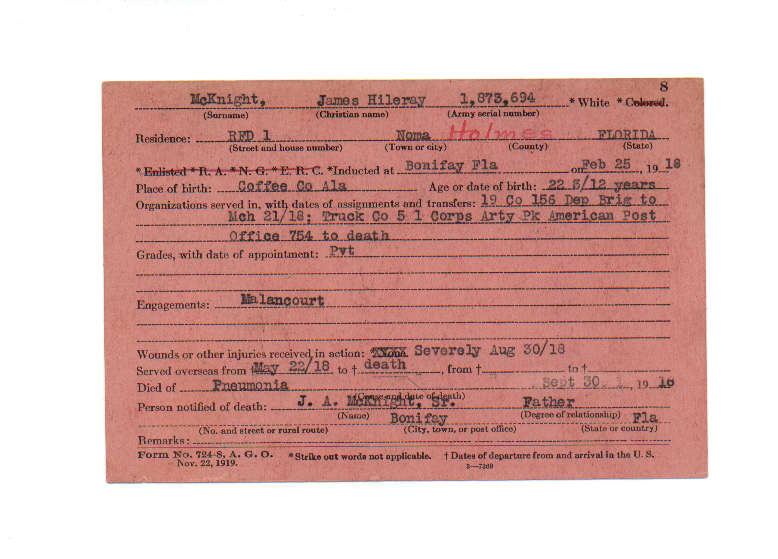 8
McKnight, James Hileray 1,873,694 * White * Colored.
(Surname) (Christian name) (Army serial number)
Residence: RFD 1 Noma Holmes FLORIDA
(Street and house number) (Town or city) (County) (State)
* Enlisted * R. A. * N. G. * E. R. C. *Inducted at Bonifay Fla on Feb 25, 1918
Place of birth: Coffee Co Ala Age or date of birth: 22 3/12 years
Organizations served in, with dates of assignments and transfers: 19 Co 156 Dep Brig to
Mch 21/18; Truck Co 5 1 Corps Arty Pk American Post
Office 754 to death
Grades, with date of appointment: Pvt
Engagements: Malancourt
Wounds or other injuries received in action: Severely Aug 30/18
Served overseas from †May 22/18 to † death, from † to †
Died of Pneumonia Sept 30, 1918
(Cause and date of death)
Person notified of death: J. A. McKnight, Sr. Father
(Name) (Degree of relationship)
Bonifay Fla
(No. and street or rural route) (City, town, or post office) (State or country)
Remarks:
Form No. 724-8, A. G. O. *Strike out words not applicable. † Dates of departure from and arrival in the U. S.
Nov. 22, 1919. 3—7369